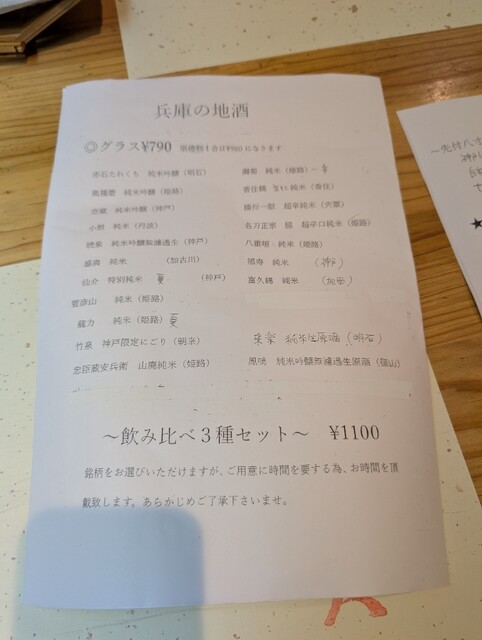 兵庫の地酒
◎グラス¥790 徳利1合は¥980になります
明石たれくち 純米吟醸（明石）
奥播磨 純米吟醸（姫路）
空蔵 純米吟醸（神戸）
小鼓 純米（丹波）
琥泉 純米吟醸無濾過生（神戸）
盛典 純米 （加古川）
仙介 特別純米 夏 （神戸）
雪彦山 純米（姫路）
龍力 純米（姫路）夏
竹泉 神戸限定にごり（朝来）
忠臣蔵安兵衛 山廃純米（姫路）
純米（姫路）
香住鶴 純米（香住）
播州一献 超辛純米（宍粟）
名刀正宗 超辛口純米（姫路）
八重垣 純米（姫路）
福寿 純米 （神戸）
富久錦 純米 （加西）
来楽 純米生原酒（明石）
鳳鳴 純米吟醸無濾過生原酒（篠山）
～飲み比べ3種セット～ ¥1100
銘柄をお選びいただけますが、ご用意に時間を要する為、お時間を頂
戴致します。あらかじめご了承下さいませ。
～先付八寸
神戸
★